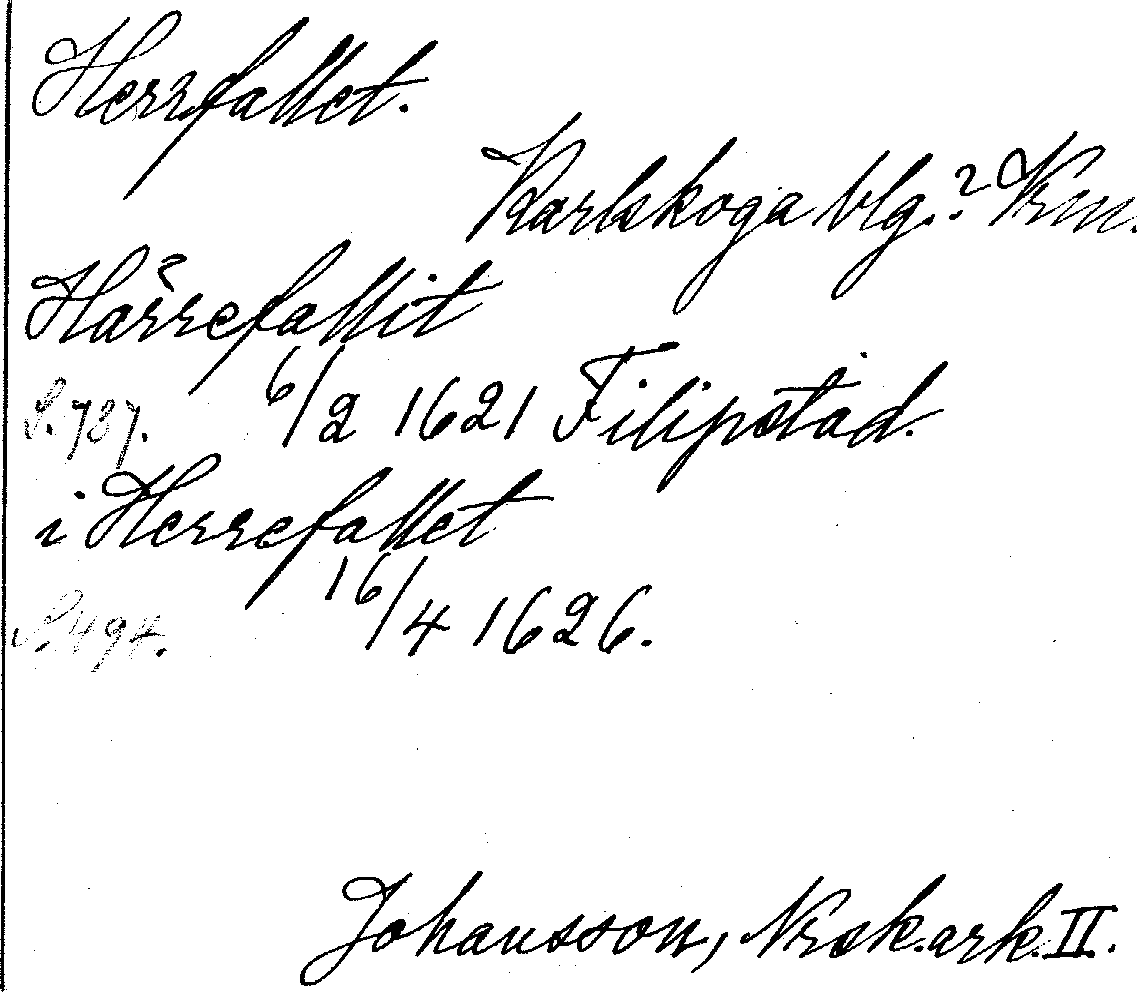 Herrfallet.
Karlskoga blg.? Vrm.
Härrefallit
S. 787. 6/2 1621 Filipstad.
i Herrefallet
S. 494. 16/4 1626.
Johansson, Norsk. ark. II.